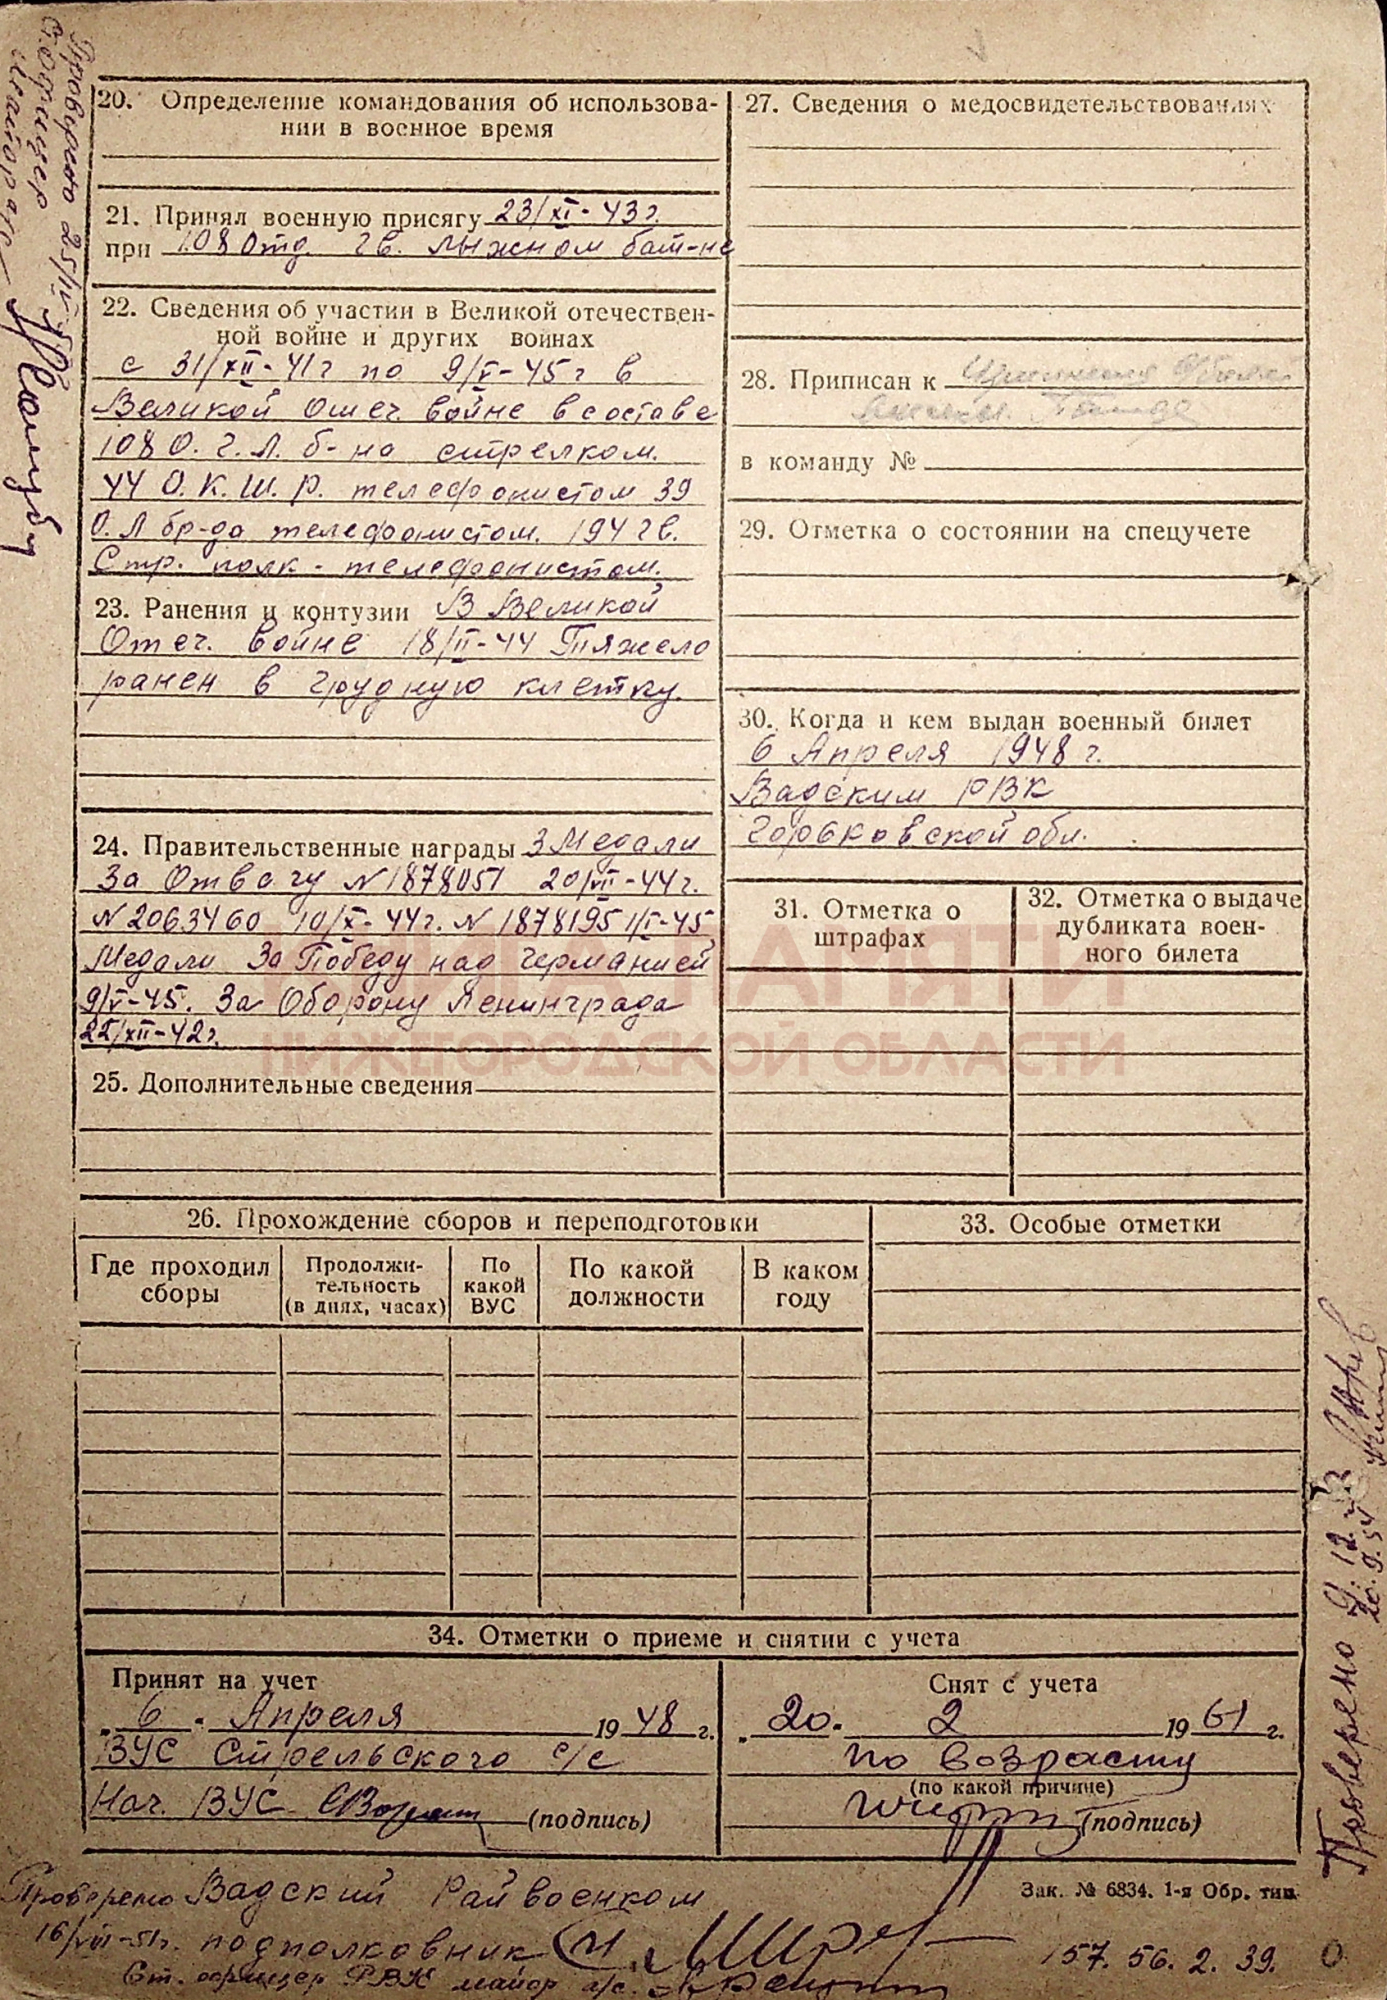 20. Определение командования об использова-
нии в военное время
21. Принял военную присягу 23/XI-43г.
при 108 отд. гв. лыжном бат-не
22. Сведения об участии в Великой отечествен-
ной войне и других войнах
с 31/XII-41г по 9/V-45г в
Великой отеч. войне в составе
108 О.г.Л. б-на стрелком.
44 О.К.Ш.Р. телефонистом 39
О.Л бр-да телефонистом. 194 гв.
Стр. полк - телефонистом.
23. Ранения и контузии В Великой
Отеч. войне 18/II-44 Тяжело
ранен в грудную клетку.
24. Правительственные награды 3 Медали
За Отвагу N 1878051 20/VII-44г.
N 2063460 10/X-44г. N 1878195 1/I-45
Медали За Победу над Германией
9/V-45. За Оборону Ленинграда
22/XII-42г.
25. Дополнительные сведения
27. Сведения о медосвидетельствованиях
28. Приписан к
в команду №
29. Отметка о состоянии на спецучете
30. Когда и кем выдан военный билет
6 Апреля 1948 г.
Вадским РВК
Горьковской обл.
31. Отметка о
штрафах
32. Отметка о выдаче
дубликата воен-
ного билета
КНИГА ПАМЯТИ
НИЖЕГОРОДСКОЙ ОБЛАСТИ
26. Прохождение сборов и переподготовки
Где проходил
сборы
Продолжи-
тельность
(в днях, часах)
По
какой
ВУС
По какой
должности
В каком
году
33. Особые отметки
34. Отметки о приеме и снятии с учета
Принят на учет
"6" Апреля 1948 г.
ВУС Стрельского с/с
Нач. ВУС (подпись)
Снят с учета
"20" 2 1961 г.
по возрасту
(по какой причине)
(подпись)
Зак. № 6834. 1-я Обр. тип.
Проверено Вадский Райвоенком
16/VII-51г. подполковник
Ст. офицер РВК майор а/с.
157. 56. 2. 39.
Проверено 25/IV
Ст. офицер
Проверено 9.12.
20.9.54